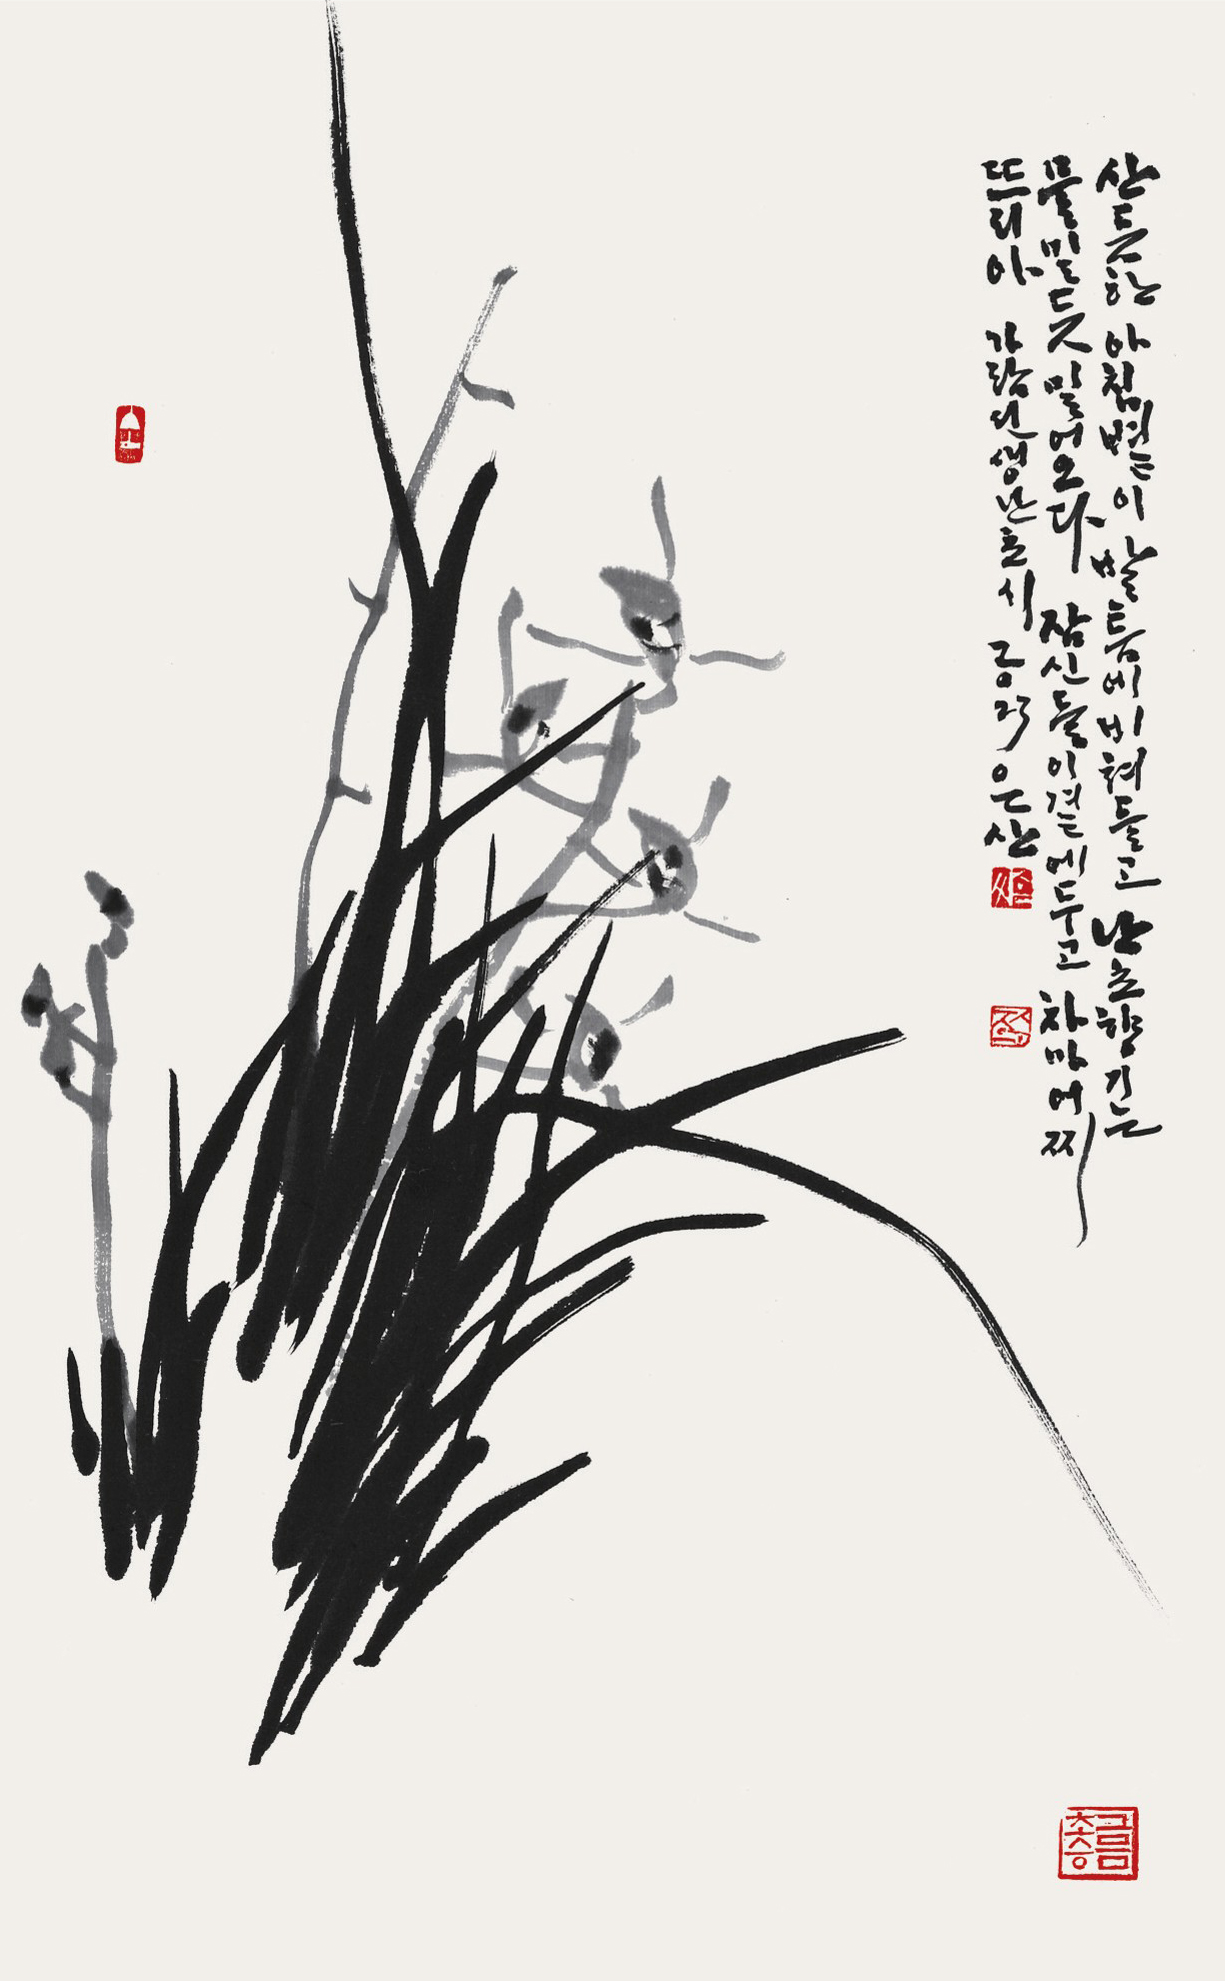 산듯한 아침볕이 발틈에 비쳐들고 난초향기는
물밀듯 밀어오다 잠신들 이곁에두고 차마어찌
뜨리아 가람선생난초시 2023 은산